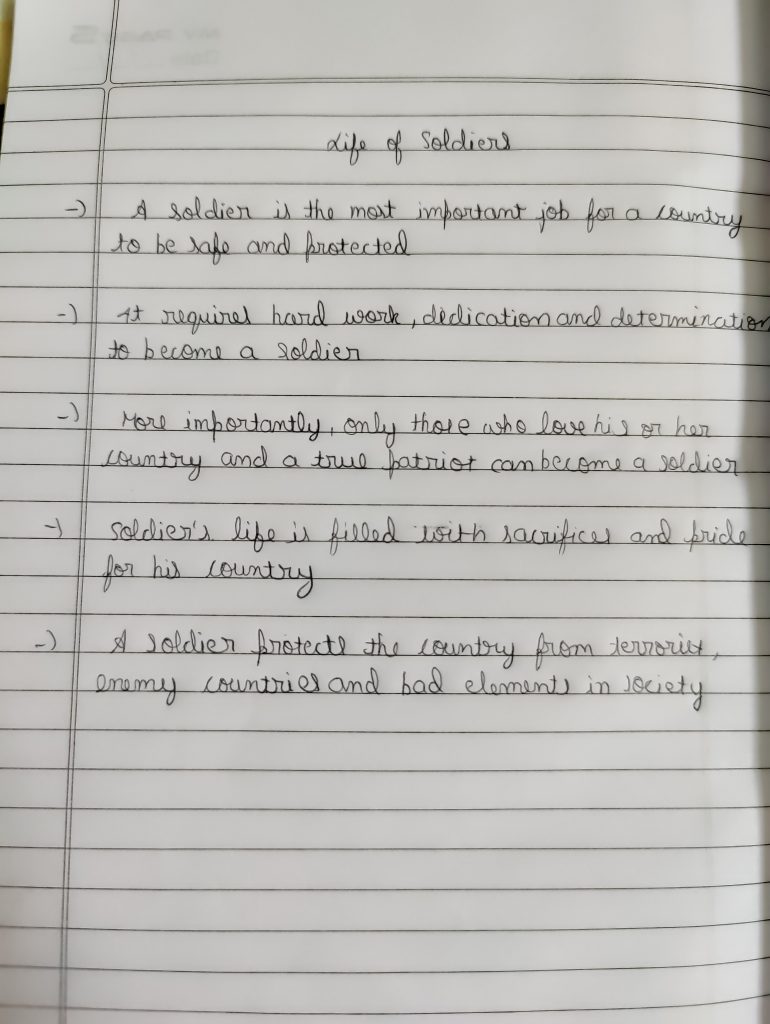 Life of Soldiers
-) A soldier is the most important job for a country
to be safe and protected
-) It requires hard work, dedication and determination
to become a soldier
-) More importantly, only those who love his or her
country and a true patriot can become a soldier
-) Soldier's life is filled with sacrifices and pride
for his country
-) A soldier protects the country from terrorist,
enemy countries and bad elements in society